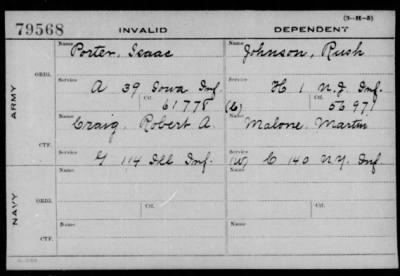 (3-H-5)
79568 INVALID DEPENDENT
ARMY
ORIG.
Name Porter, Isaac Name Johnson, Rush
Service A 39 Iowa Inf. Service H 1 N.J. Inf.
Ctf. 61778 Ctf. (C) 5697
CTF.
Name Craig, Robert A. Name Malone, Martin
Service G 114 Ill Inf. Service (W) C 140 N.Y. Inf.
NAVY
ORIG.
Name Name
Service Ctf. Service Ctf.
CTF.
Name Name
Service Service